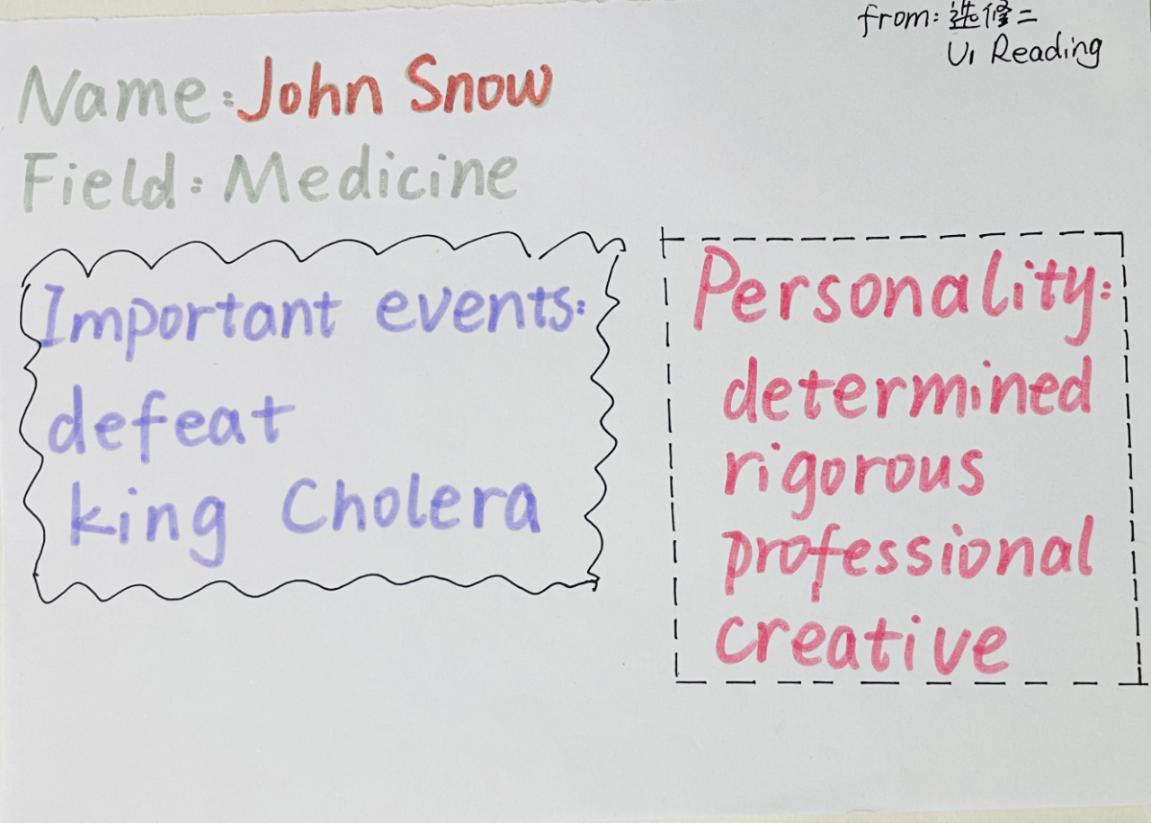 from: 选修二
U1 Reading
Name: John Snow
Field: Medicine
Important events:
defeat
king Cholera
Personality:
determined
rigorous
professional
creative